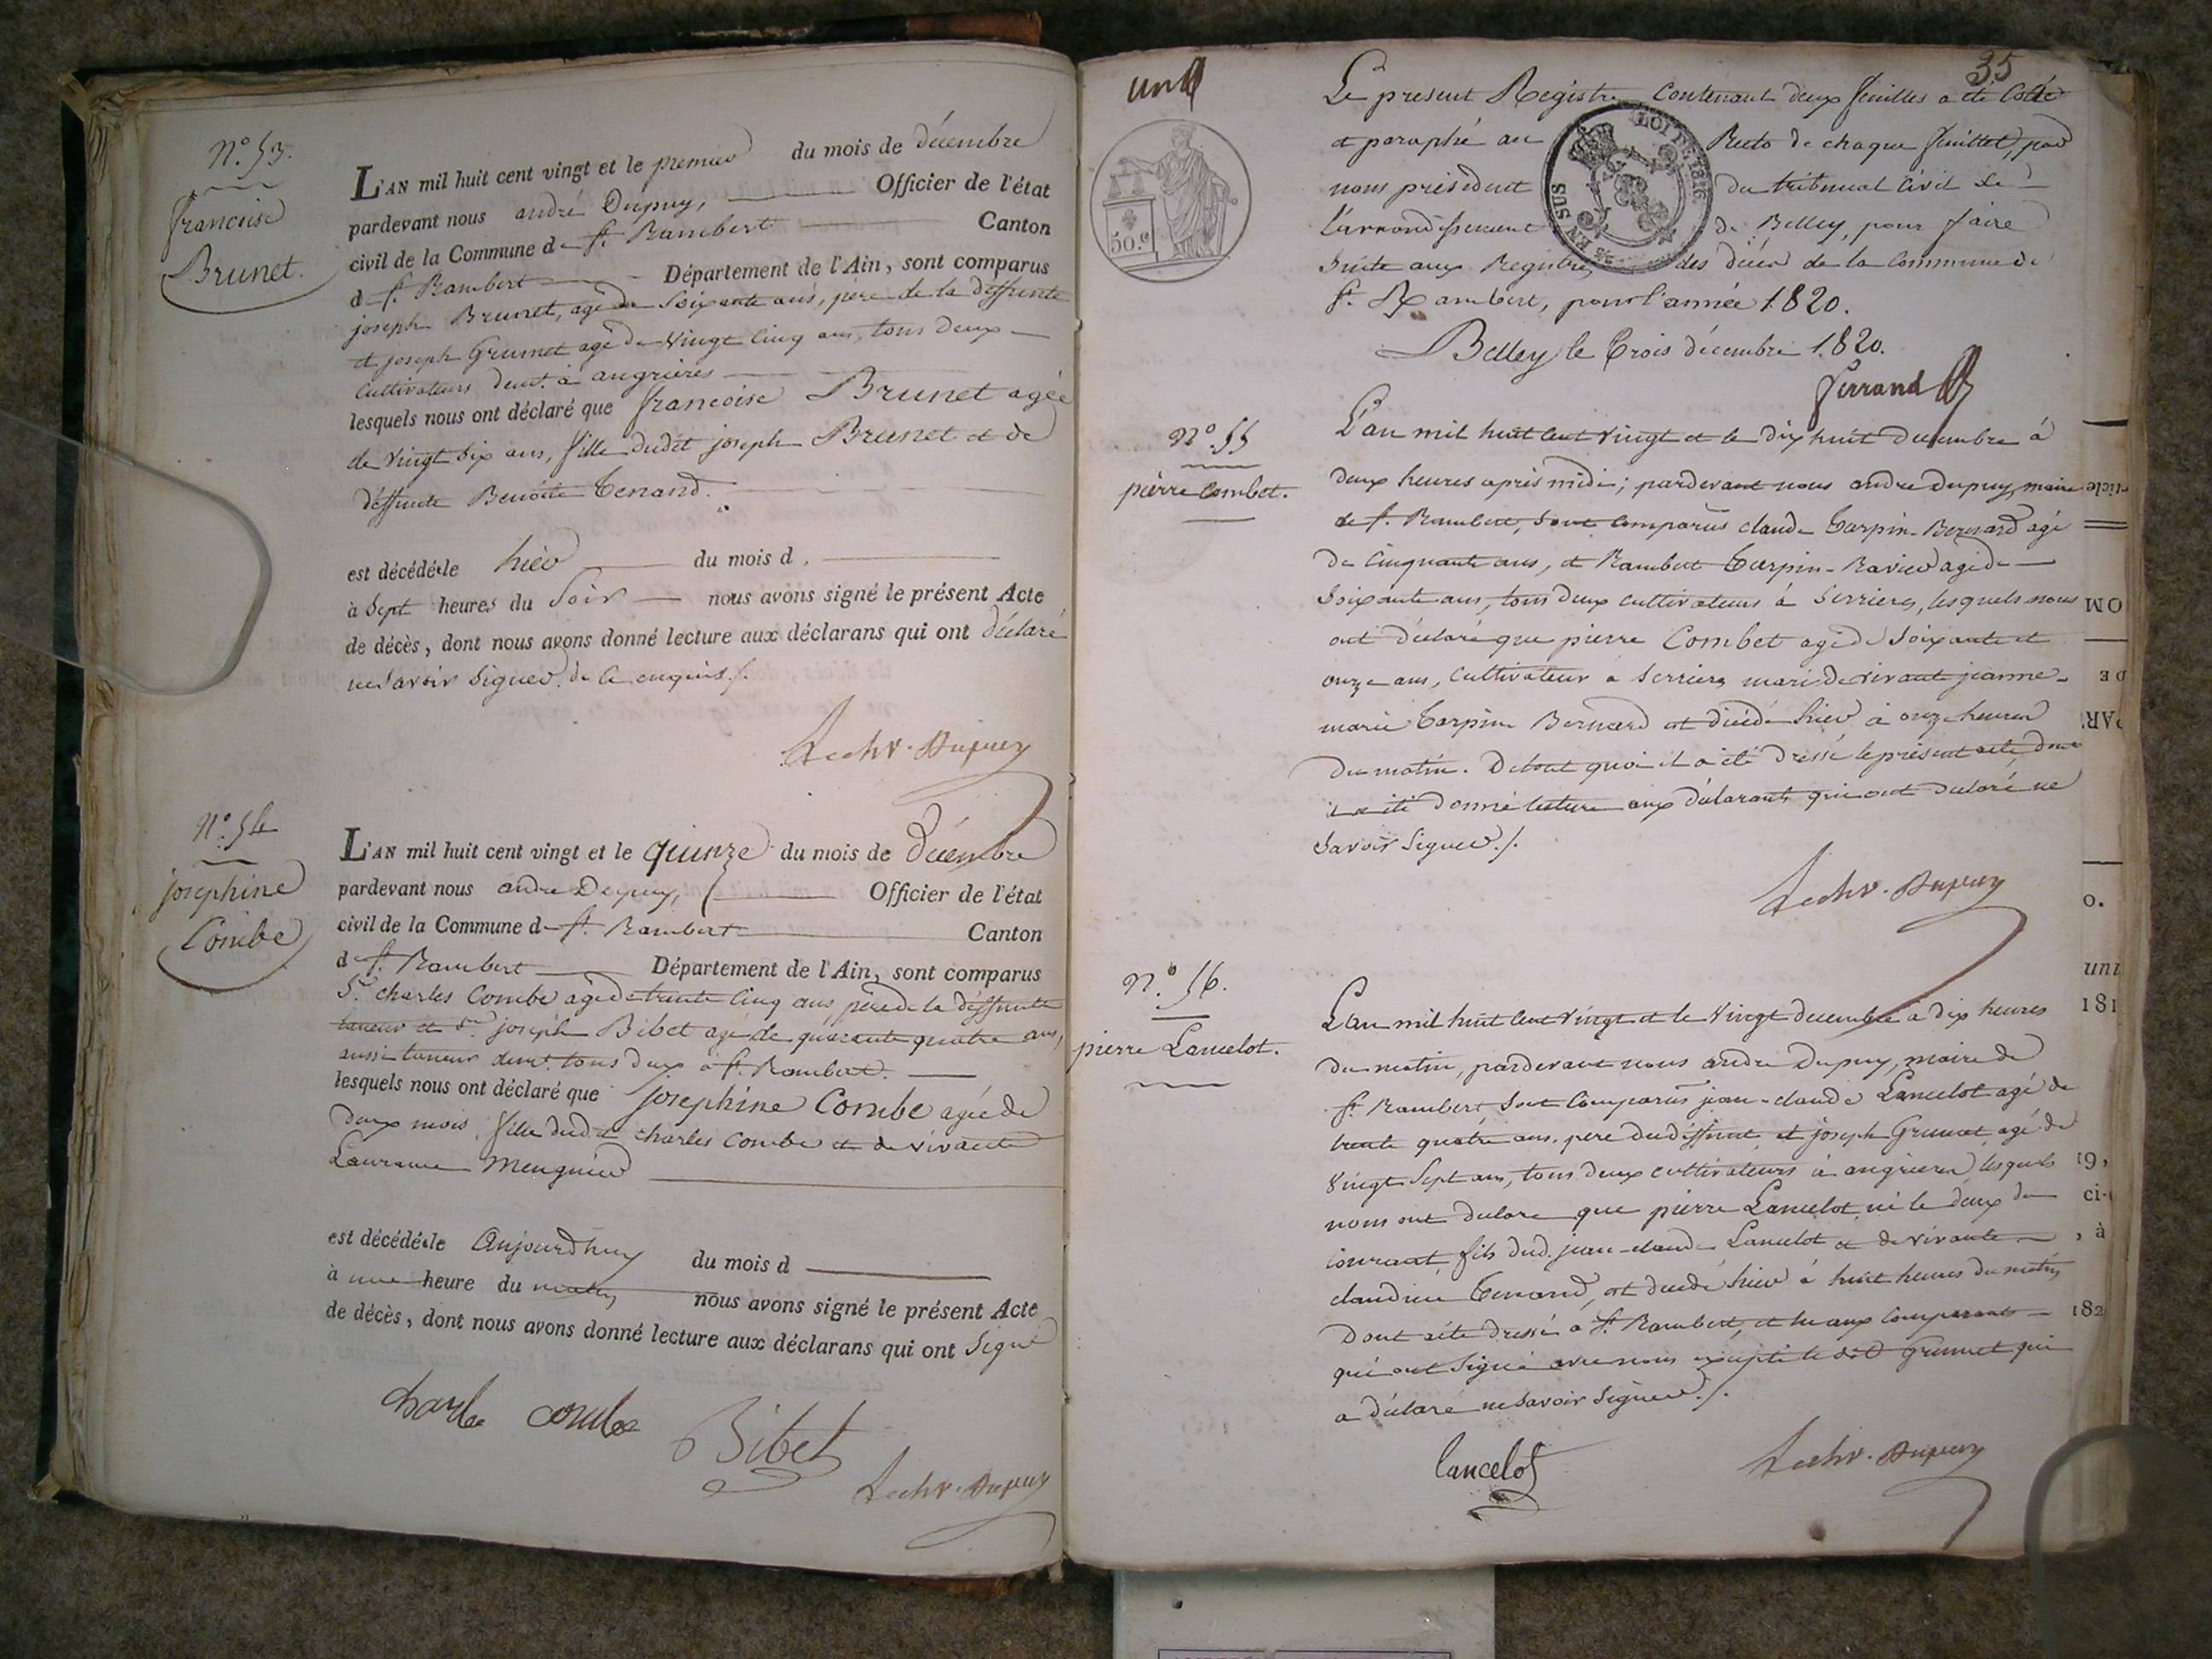 N.º 53.
francoise
Brunet.
L'AN mil huit cent vingt et le premier du mois de décembre
pardevant nous andré Dupuy, Officier de l'état
civil de la Commune de St. Rambert Canton
de St. Rambert Département de l'Ain, sont comparus
joseph Brunet, agé de Soixante ans, père de la deffunte
et joseph Grumet agé de vingt Cinq ans, tous deux
Cultivateurs demt. à angrieres
lesquels nous ont déclaré que francoise Brunet agée
de vingt Six ans, fille dudit joseph Brunet et de
deffunte Benoite Tenand.
est décédée le hier du mois d
à Sept heures du Soir nous avons signé le présent Acte
de décès, dont nous avons donné lecture aux déclarans qui ont déclaré
ne Savoir Signer de ce enquis ./.
Dupuy
N.º 54
josephine
Combe
L'AN mil huit cent vingt et le quinze du mois de Décembre
pardevant nous andre Dupuy, Officier de l'état
civil de la Commune de St. Rambert Canton
de St. Rambert Département de l'Ain, sont comparus
Sr. charles Combe agé de trente Cinq ans, père de la deffunte
taneur et Sr. joseph Bibet agé de quarante quatre ans,
aussi taneur demt. tous deux à St. Rambert.
lesquels nous ont déclaré que josephine Combe agée de
deux mois, fille dudit charles Combe et de vivante
Laurance Meugnier
est décédée le Aujourdhuy du mois d
à une heure du matin nous avons signé le présent Acte
de décès, dont nous avons donné lecture aux déclarans qui ont Signé
charle combe
Bibet
Dupuy
35
un
50.c
LOI DE 1816
EN SUS
Le present Registre Contenant deux feuilles a été Coté
et paraphé au Recto de chaque feuillet, par
nous président du tribunal Civil de
l'arrondissement de Belley, pour faire
Suite aux Registres des décès de la Commune de
St. Rambert, pour l'année 1820.
Belley le Trois décembre 1820.
Ferrand
Nº. 55
pierre Combet.
L'an mil huit Cent vingt et le Dix huit Decembre à
deux heures après midi; pardevant nous andre Dupuy, maire
de St. Rambert, Sont Comparus claude Tarpin-Bernard agé
de Cinquante ans, et Rambert Tarpin-Ravier agé de
Soixante ans, tous deux cultivateurs à Serrieres, lesquels nous
ont déclaré que pierre Combet agé de Soixante et
onze ans, Cultivateur à Serrieres mari de vivante jeanne-
marie Tarpin Bernard est décédé hier à onze heures
du matin. De tout quoi il a été dressé le présent acte, dont
il a été donné lecture aux déclarants qui ont déclaré ne
Savoir Signer ./.
Dupuy
Nº. 56.
pierre Lancelot.
L'an mil huit Cent vingt et le Vingt decembre à dix heures
du matin, pardevant nous andre Dupuy, maire de
St. Rambert Sont Comparus jean-claude Lancelot agé de
trente quatre ans, pere du deffunt et joseph Grumet agé de
vingt Sept ans, tous deux cultivateurs à angrieres lesquels
nous ont declare que pierre Lancelot né le deux du
courant fils dud. jean-claude Lancelot et de vivante
claudine Tenand, est decedé hier à huit heures du matin,
Dont acte dressé à St. Rambert, et lu aux Comparants
qui ont Signé avec nous excepté le dit Grumet qui
a déclaré ne Savoir Signer ./.
lancelot
Dupuy
OM
DE
PAR
o.
uni
181
19,
ci-
, à
182